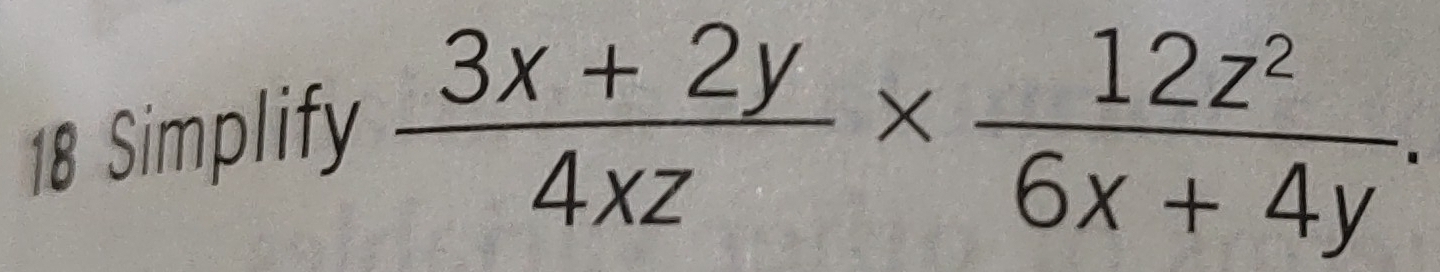 18 Simplify \frac{3x + 2y}{4xz} × \frac{12z²}{6x + 4y}.